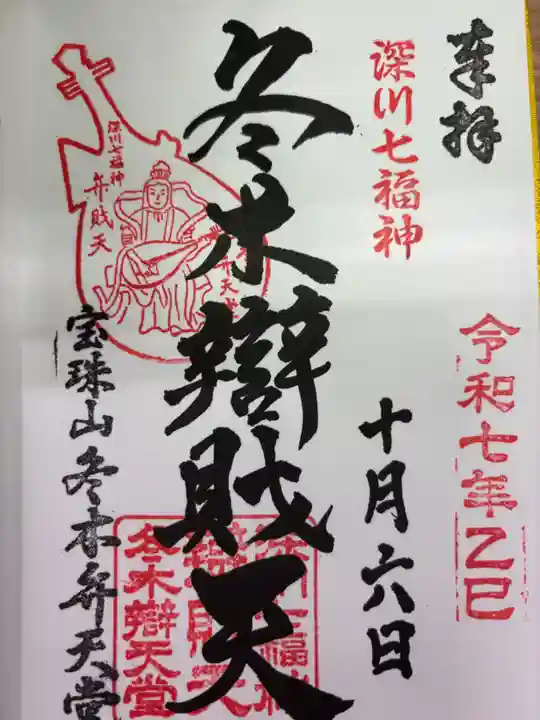 奉拝
深川七福神
令和七年乙巳
十月六日
冬木辯財天
深川七福神
弁財天
宝珠山冬木弁天堂
冬木辯天堂